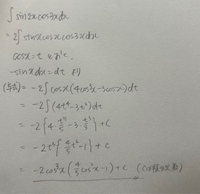 ∫sin2x cos3x dx
= 2∫sinx cosx cos3x dx
cosx = t とおく
-sinx dx = dt より
(与式) = -2∫cosx(4cos³x-3cosx)dx
= -2∫(4t⁴-3t²)dt
= -2{4·t⁵/5-3·t³/3}+C
= -2t³{4/5t²-1}+C
= -2cos³x(4/5cos²x-1)+C (Cは積分定数)